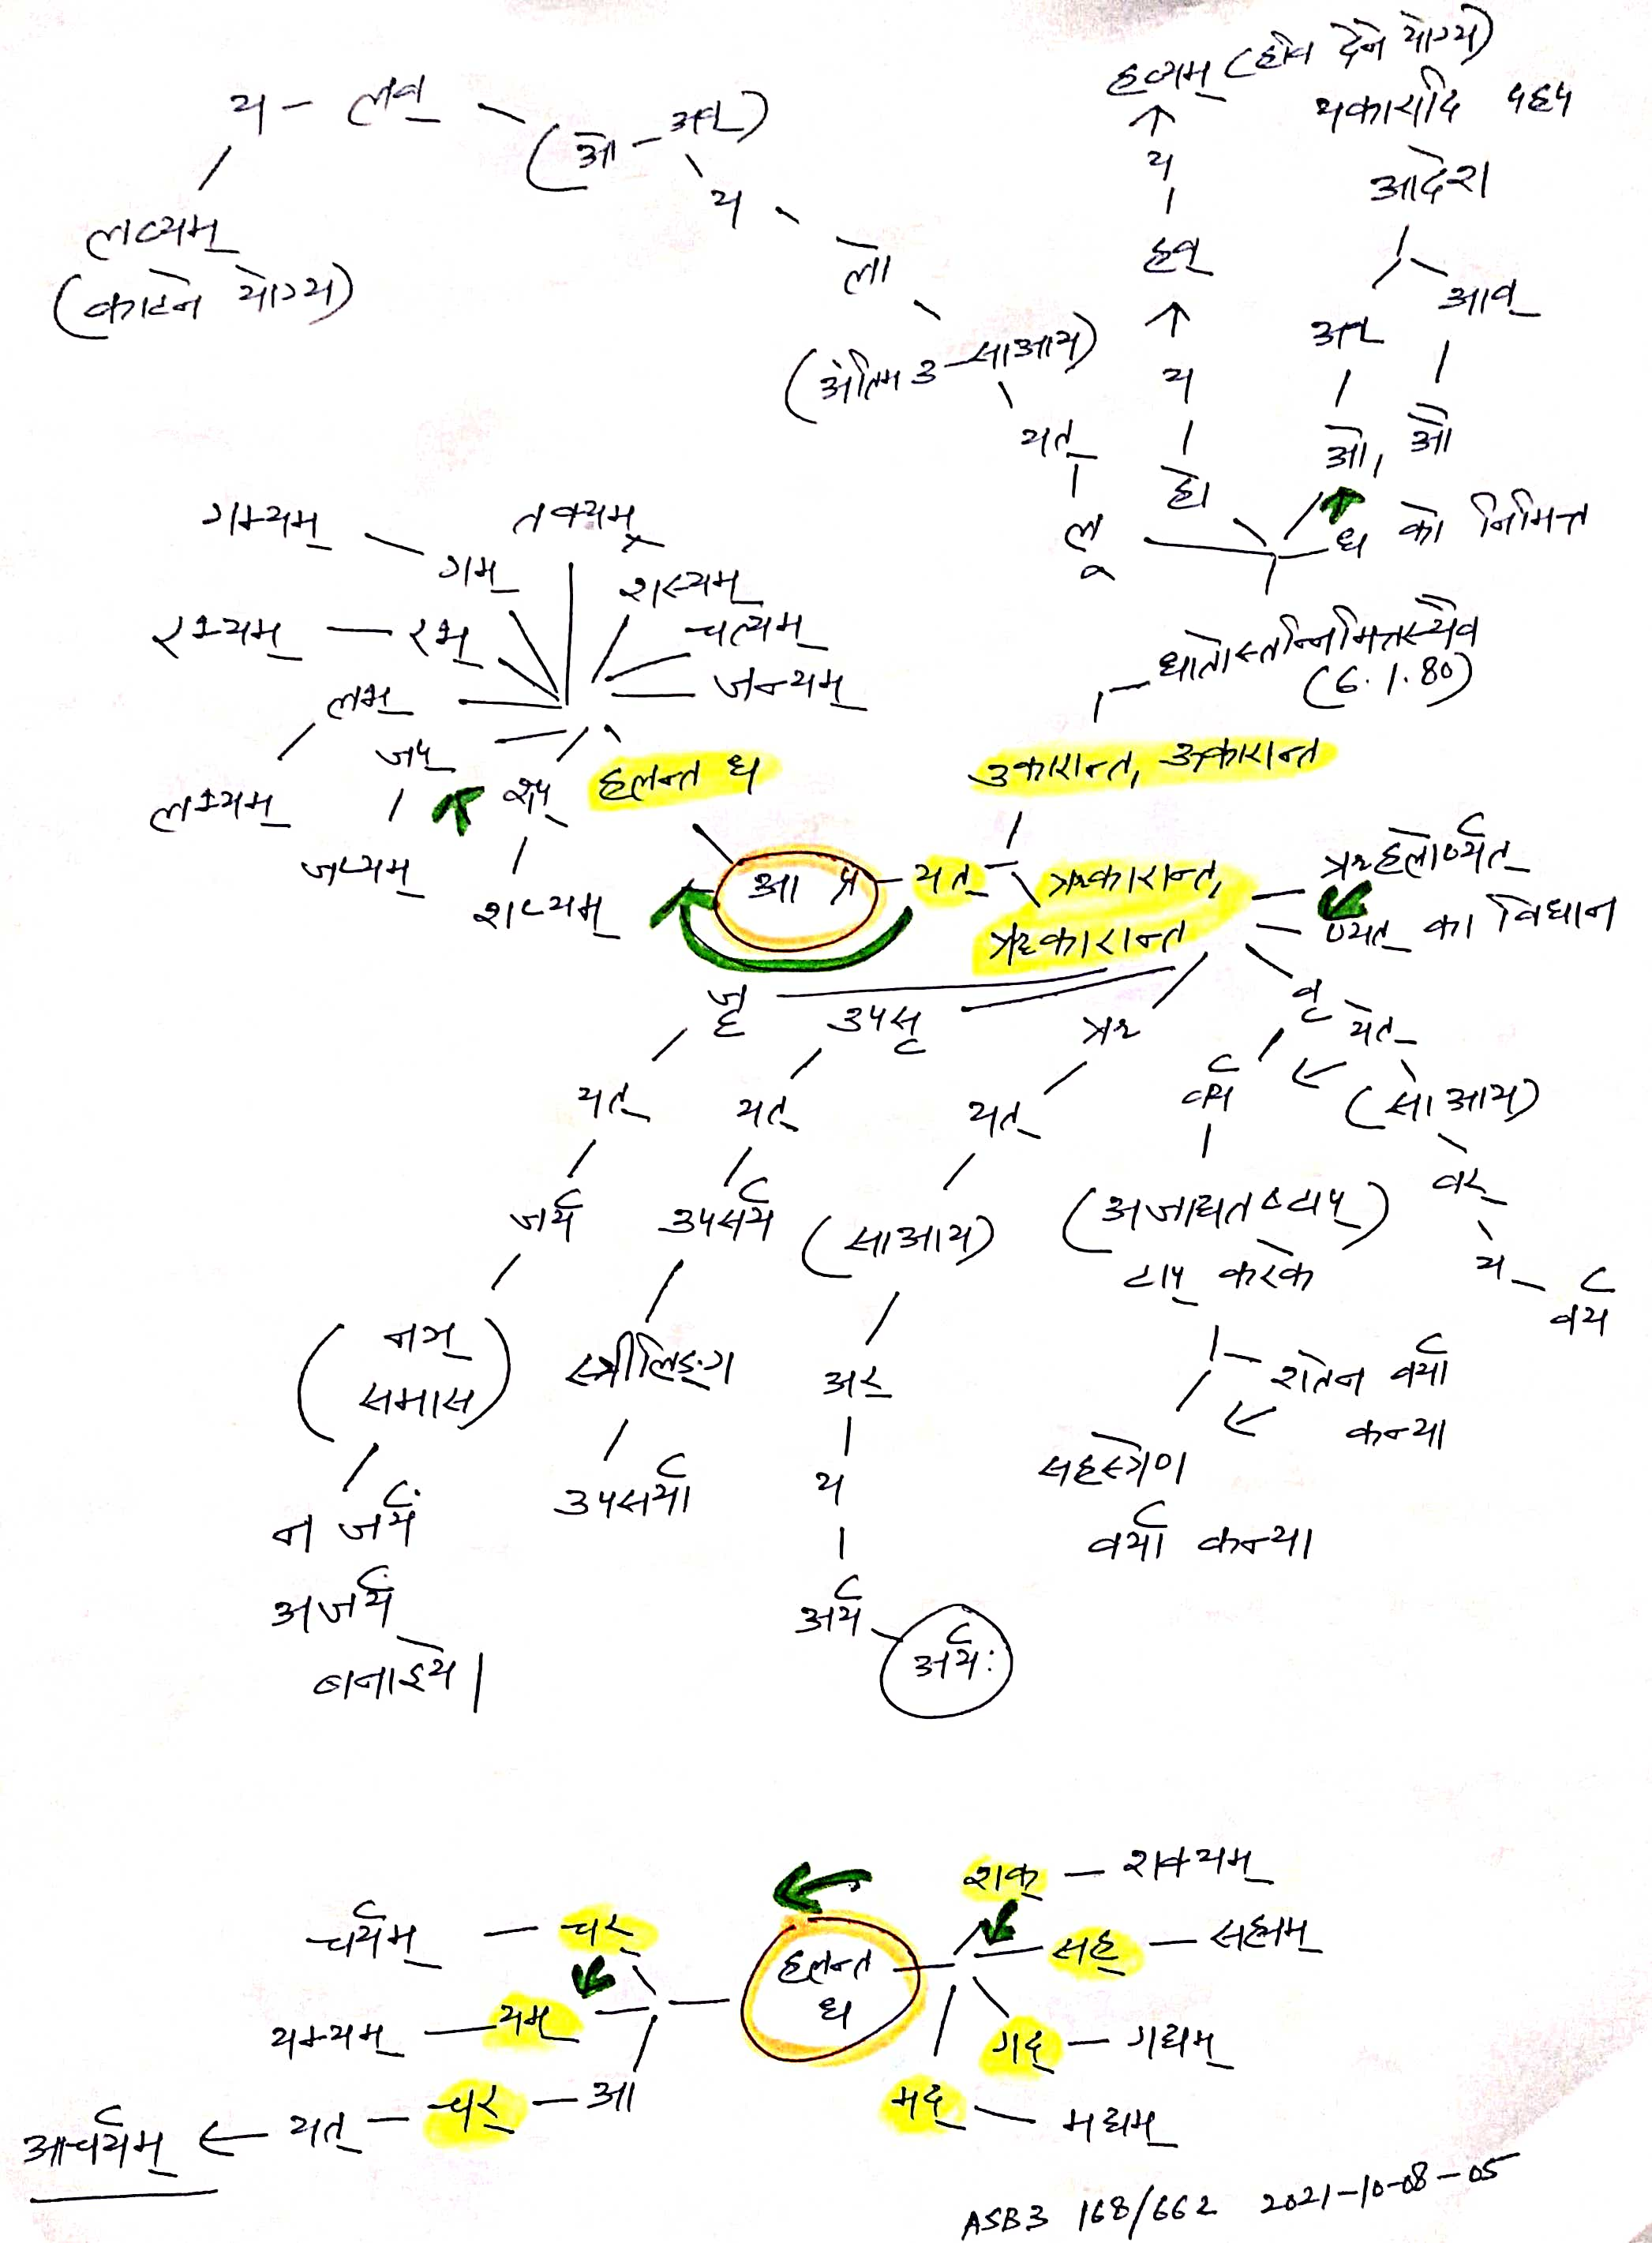 हव्यम् (होम देने योग्य)
यकारादि परे
आदेश
अव्
आव्
ओ, औ
य
हव्
य
हो
ध को निमित्त
य - लव् - (ओ - अव्)
य
लो
(अंतिम उ - सा आ य)
यत्
लू
लव्यम्
(काटने योग्य)
धातोस्तन्निमित्तस्यैव
(6.1.80)
उकारान्त, ऊकारान्त
गम्यम् - गम्
तक्यम्
शस्यम्
चत्यम्
जन्यम्
रभ्यम् - रभ्
लभ्
लभ्यम्
जप्
जप्यम्
शप्
शप्यम्
हलन्त ध
आ प्र - यत्
ऋकारान्त,
ॠकारान्त
ऋहलोर्ण्यत्
ण्यत् का विधान
जॄ
यत्
जर्य
(नञ्
समास)
न जर्यं
अजर्यं
बनाइये।
उपसृ
यत्
उपसर्य
स्त्रीलिङ्ग
उपसर्या
ऋ
यत्
(सा आ य)
अर्
य
अर्य - अर्यः
वृ
यत्
(सा आ य)
वर्
य - वर्य
वर्य
(अजाद्यतष्टाप्)
टाप् करके
शतेन वर्या
कन्या
सहस्त्रेण
वर्या कन्या
हलन्त
ध
शक् - शक्यम्
सह् - सह्यम्
गद् - गद्यम्
मद् - मद्यम्
चर्यम् - चर्
यम्यम् - यम्
आचर्यम् ← यत् - चर् - आ
ASB3 168/662 2021-10-08-05